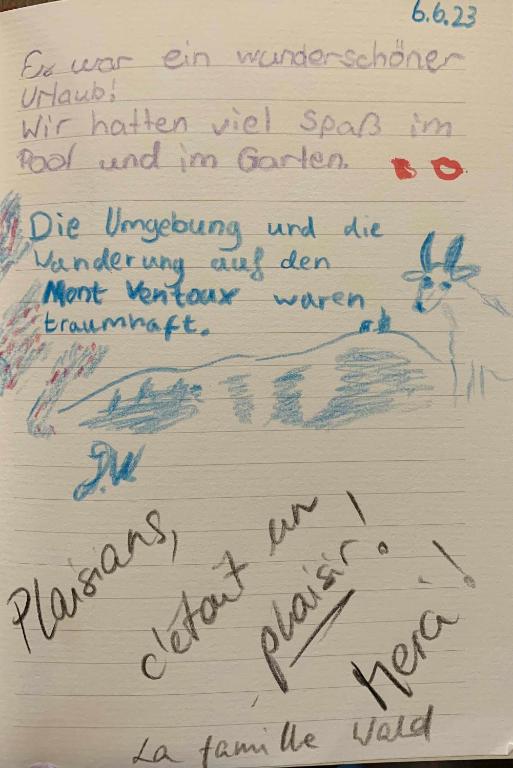 6.6.23
Es war ein wunderschöner
Urlaub!
Wir hatten viel Spaß im
Pool und im Garten.
Die Umgebung und die
Wanderung auf den
Mont Ventoux waren
traumhaft.
J.W
Plaisians,
c'etait un
plaisir!
Merci!
La famille Wald